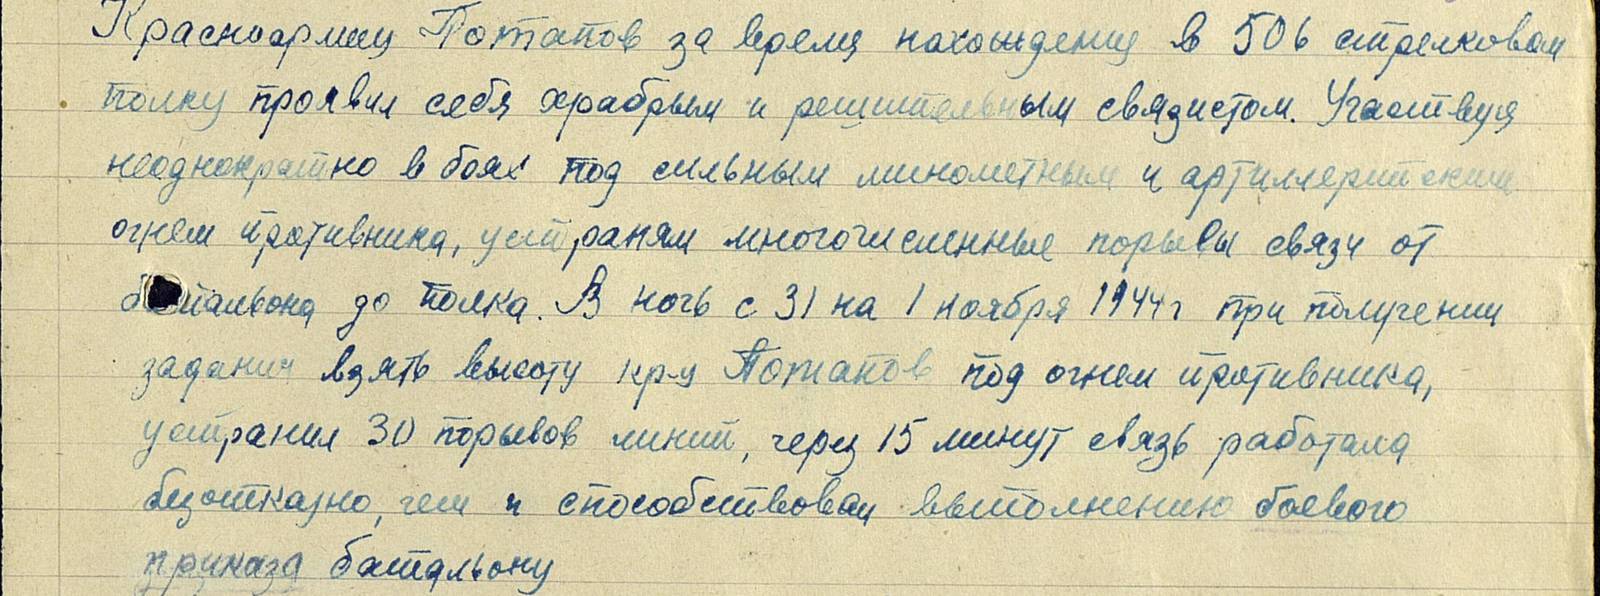 Красноармеец Потапов за время нахождения в 506 стрелковом
полку проявил себя храбрым и решительным связистом. Участвуя
неоднократно в боях под сильным минометным и артиллерийским
огнем противника, устранял многочисленные порывы связи от
батальона до полка. В ночь с 31 на 1 ноября 1944 г при получении
задания взять высоту кр-ц Потапов под огнем противника,
устранил 30 порывов линий, через 15 минут связь работала
безотказно, чем и способствовал выполнению боевого
приказа батальону